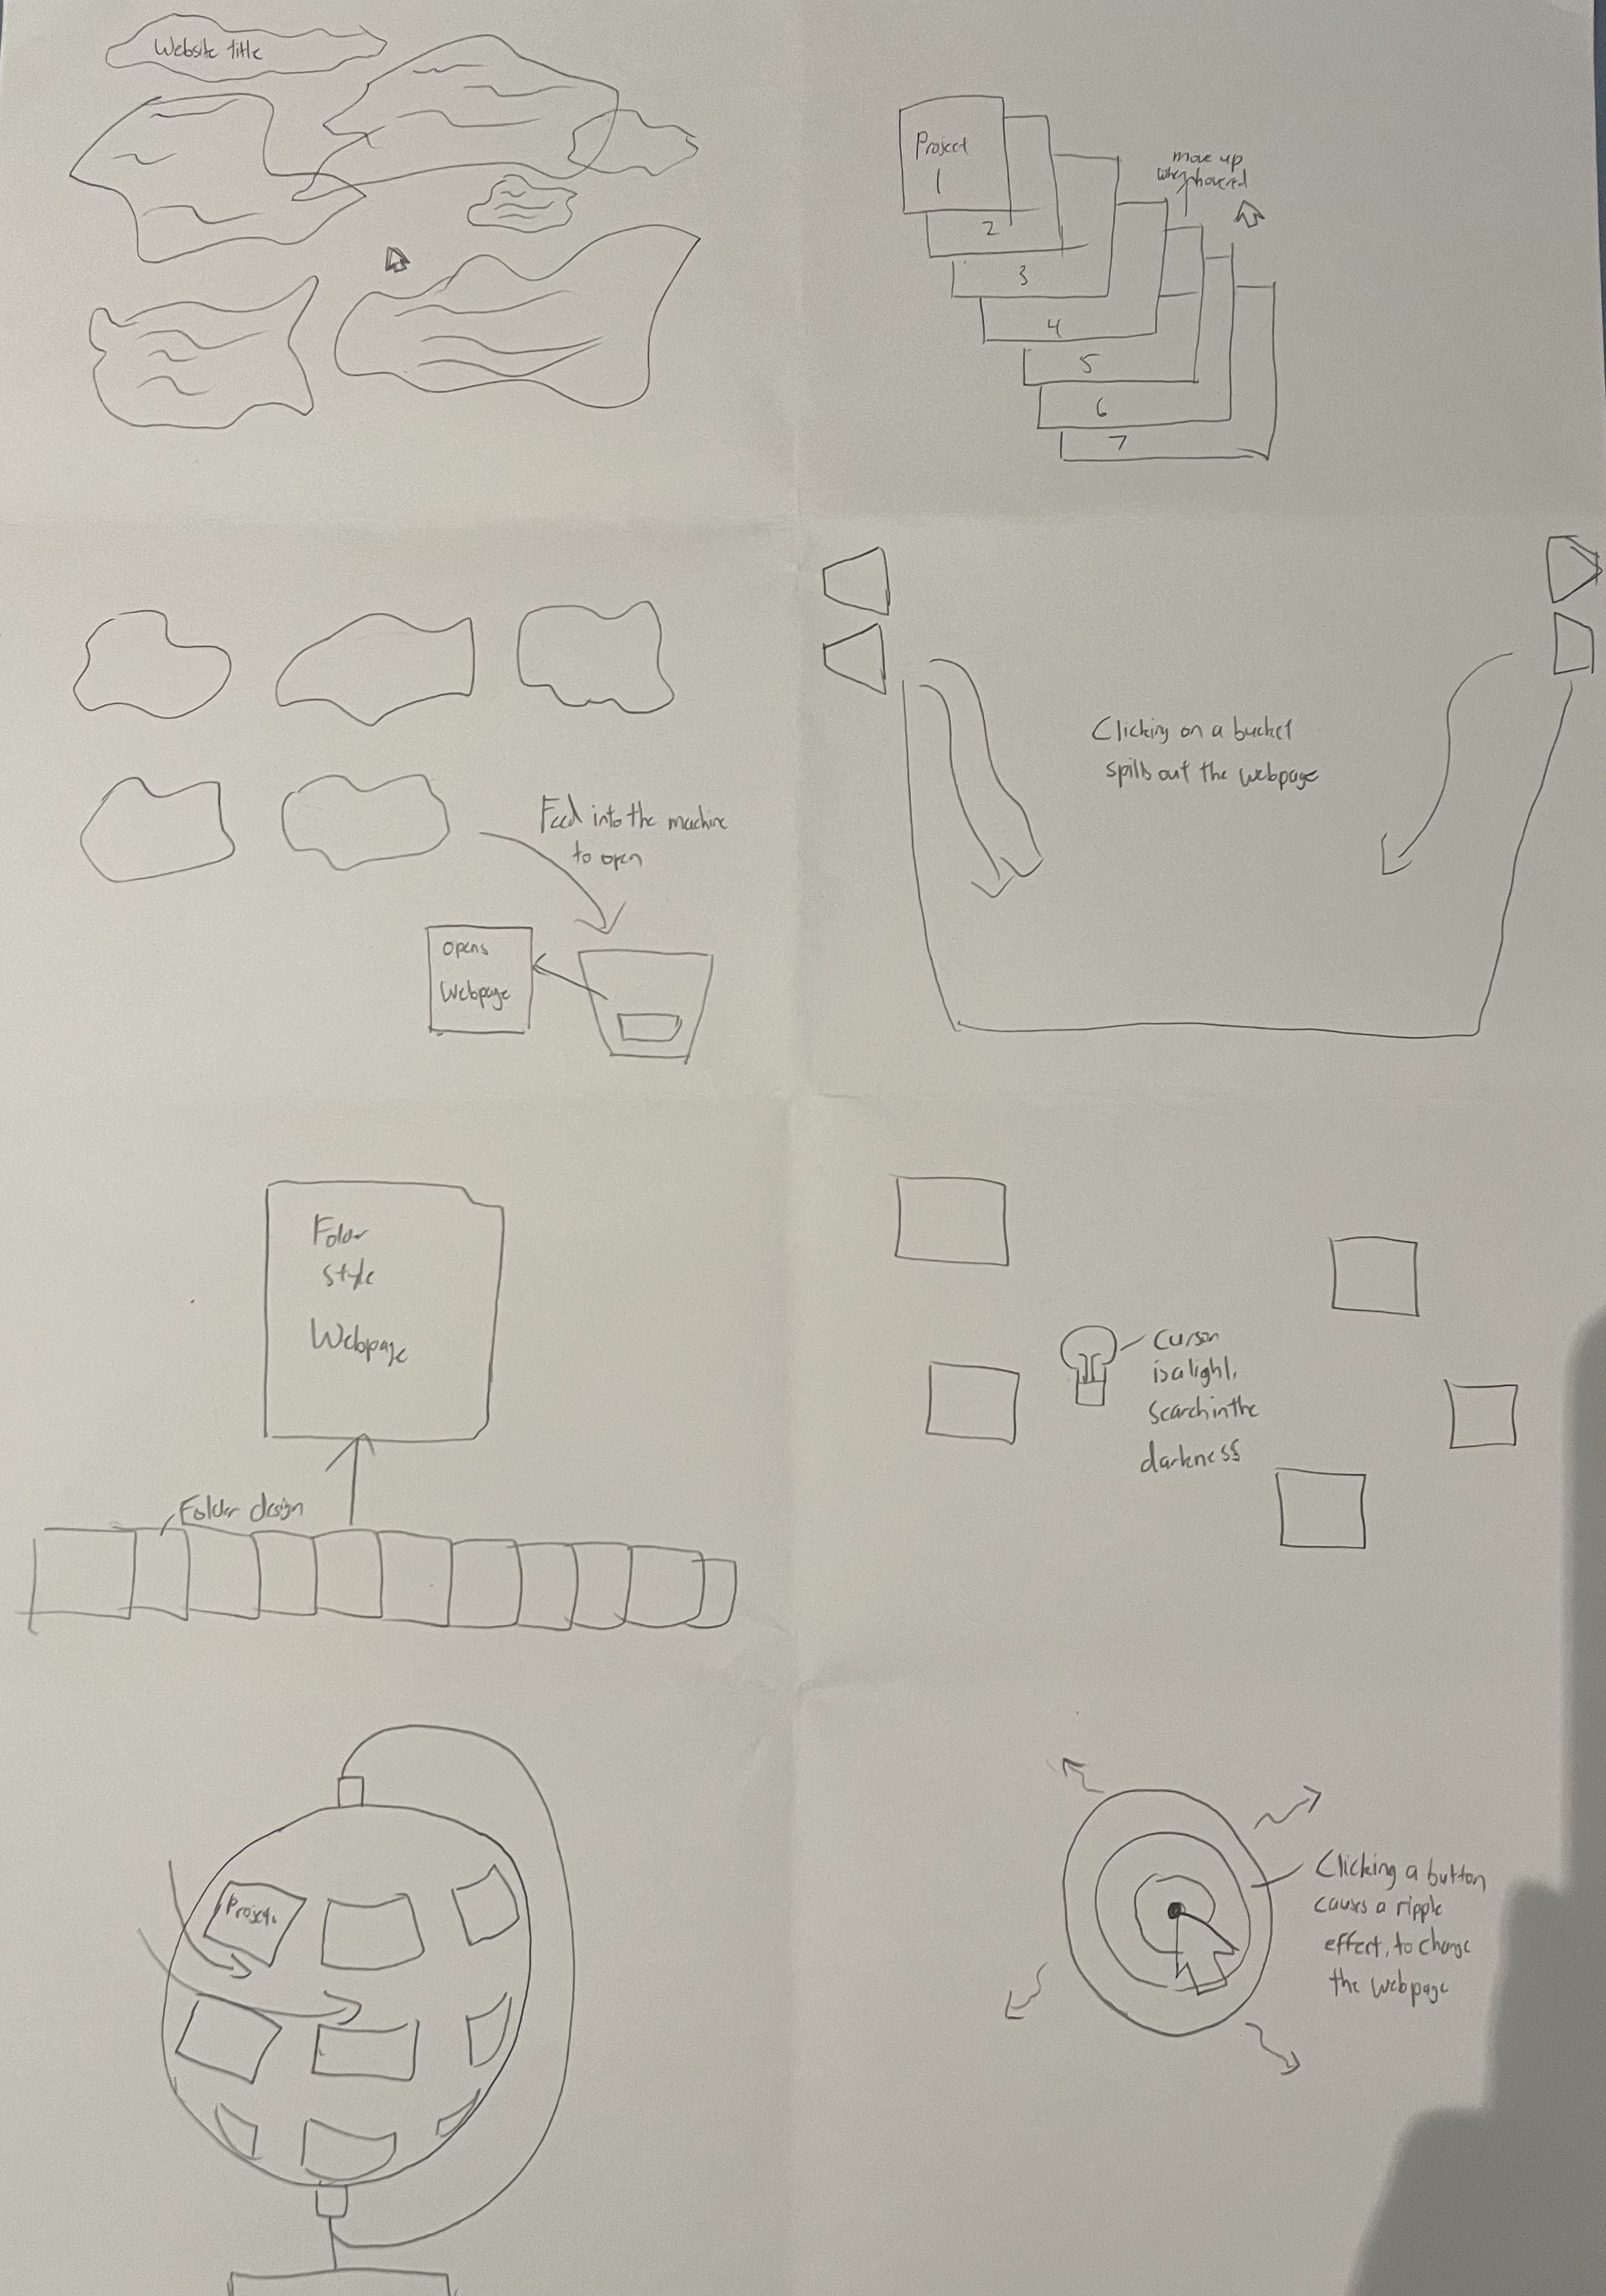 Website title
Project
1
2
3
4
5
6
7
move up
when hovered
Feed into the machine
to open
opens
Webpage
Clicking on a bucket
spills out the webpage
Folder
style
Webpage
Folder design
Cursor
is a light,
search in the
darkness
Project.
Clicking a button
causes a ripple
effect, to change
the webpage